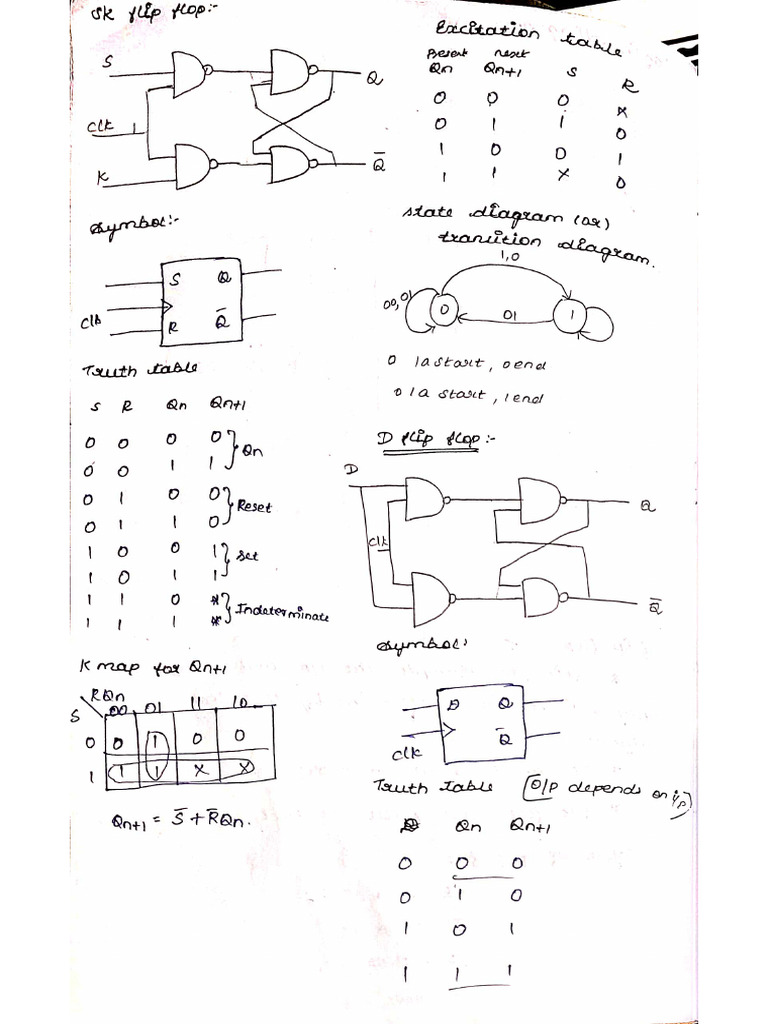 SR flip flop:-
S
Clk 1
R
Q
Q̅
Symbol:-
S Q
Clk
R Q̅
Truth table
S R Qn Qn+1
0 0 0 0 } Qn
0 0 1 1
0 1 0 0 } Reset
0 1 1 0
1 0 0 1 } Set
1 0 1 1
1 1 0 * } Indeterminate
1 1 1 *
K map for Qn+1
RQn
S 00 01 11 10
0 0 1 0 0
1 1 1 X X
Qn+1 = S̅ + R̅Qn.
Excitation table
present next
Qn Qn+1 S R
0 0 0 x
0 1 1 0
1 0 0 1
1 1 X 0
state diagram (or)
tranıition diagram.
1,0
00,01 0 01 1
0 1a start, 0 end
0 1 a start, 1 end
D flip flop:-
D
Clk
Q
Q̅
Symbol:
D Q
Clk
Q̅
Truth table (O/P depends on i/p)
D Qn Qn+1
0 0 0
0 1 0
1 0 1
1 1 1